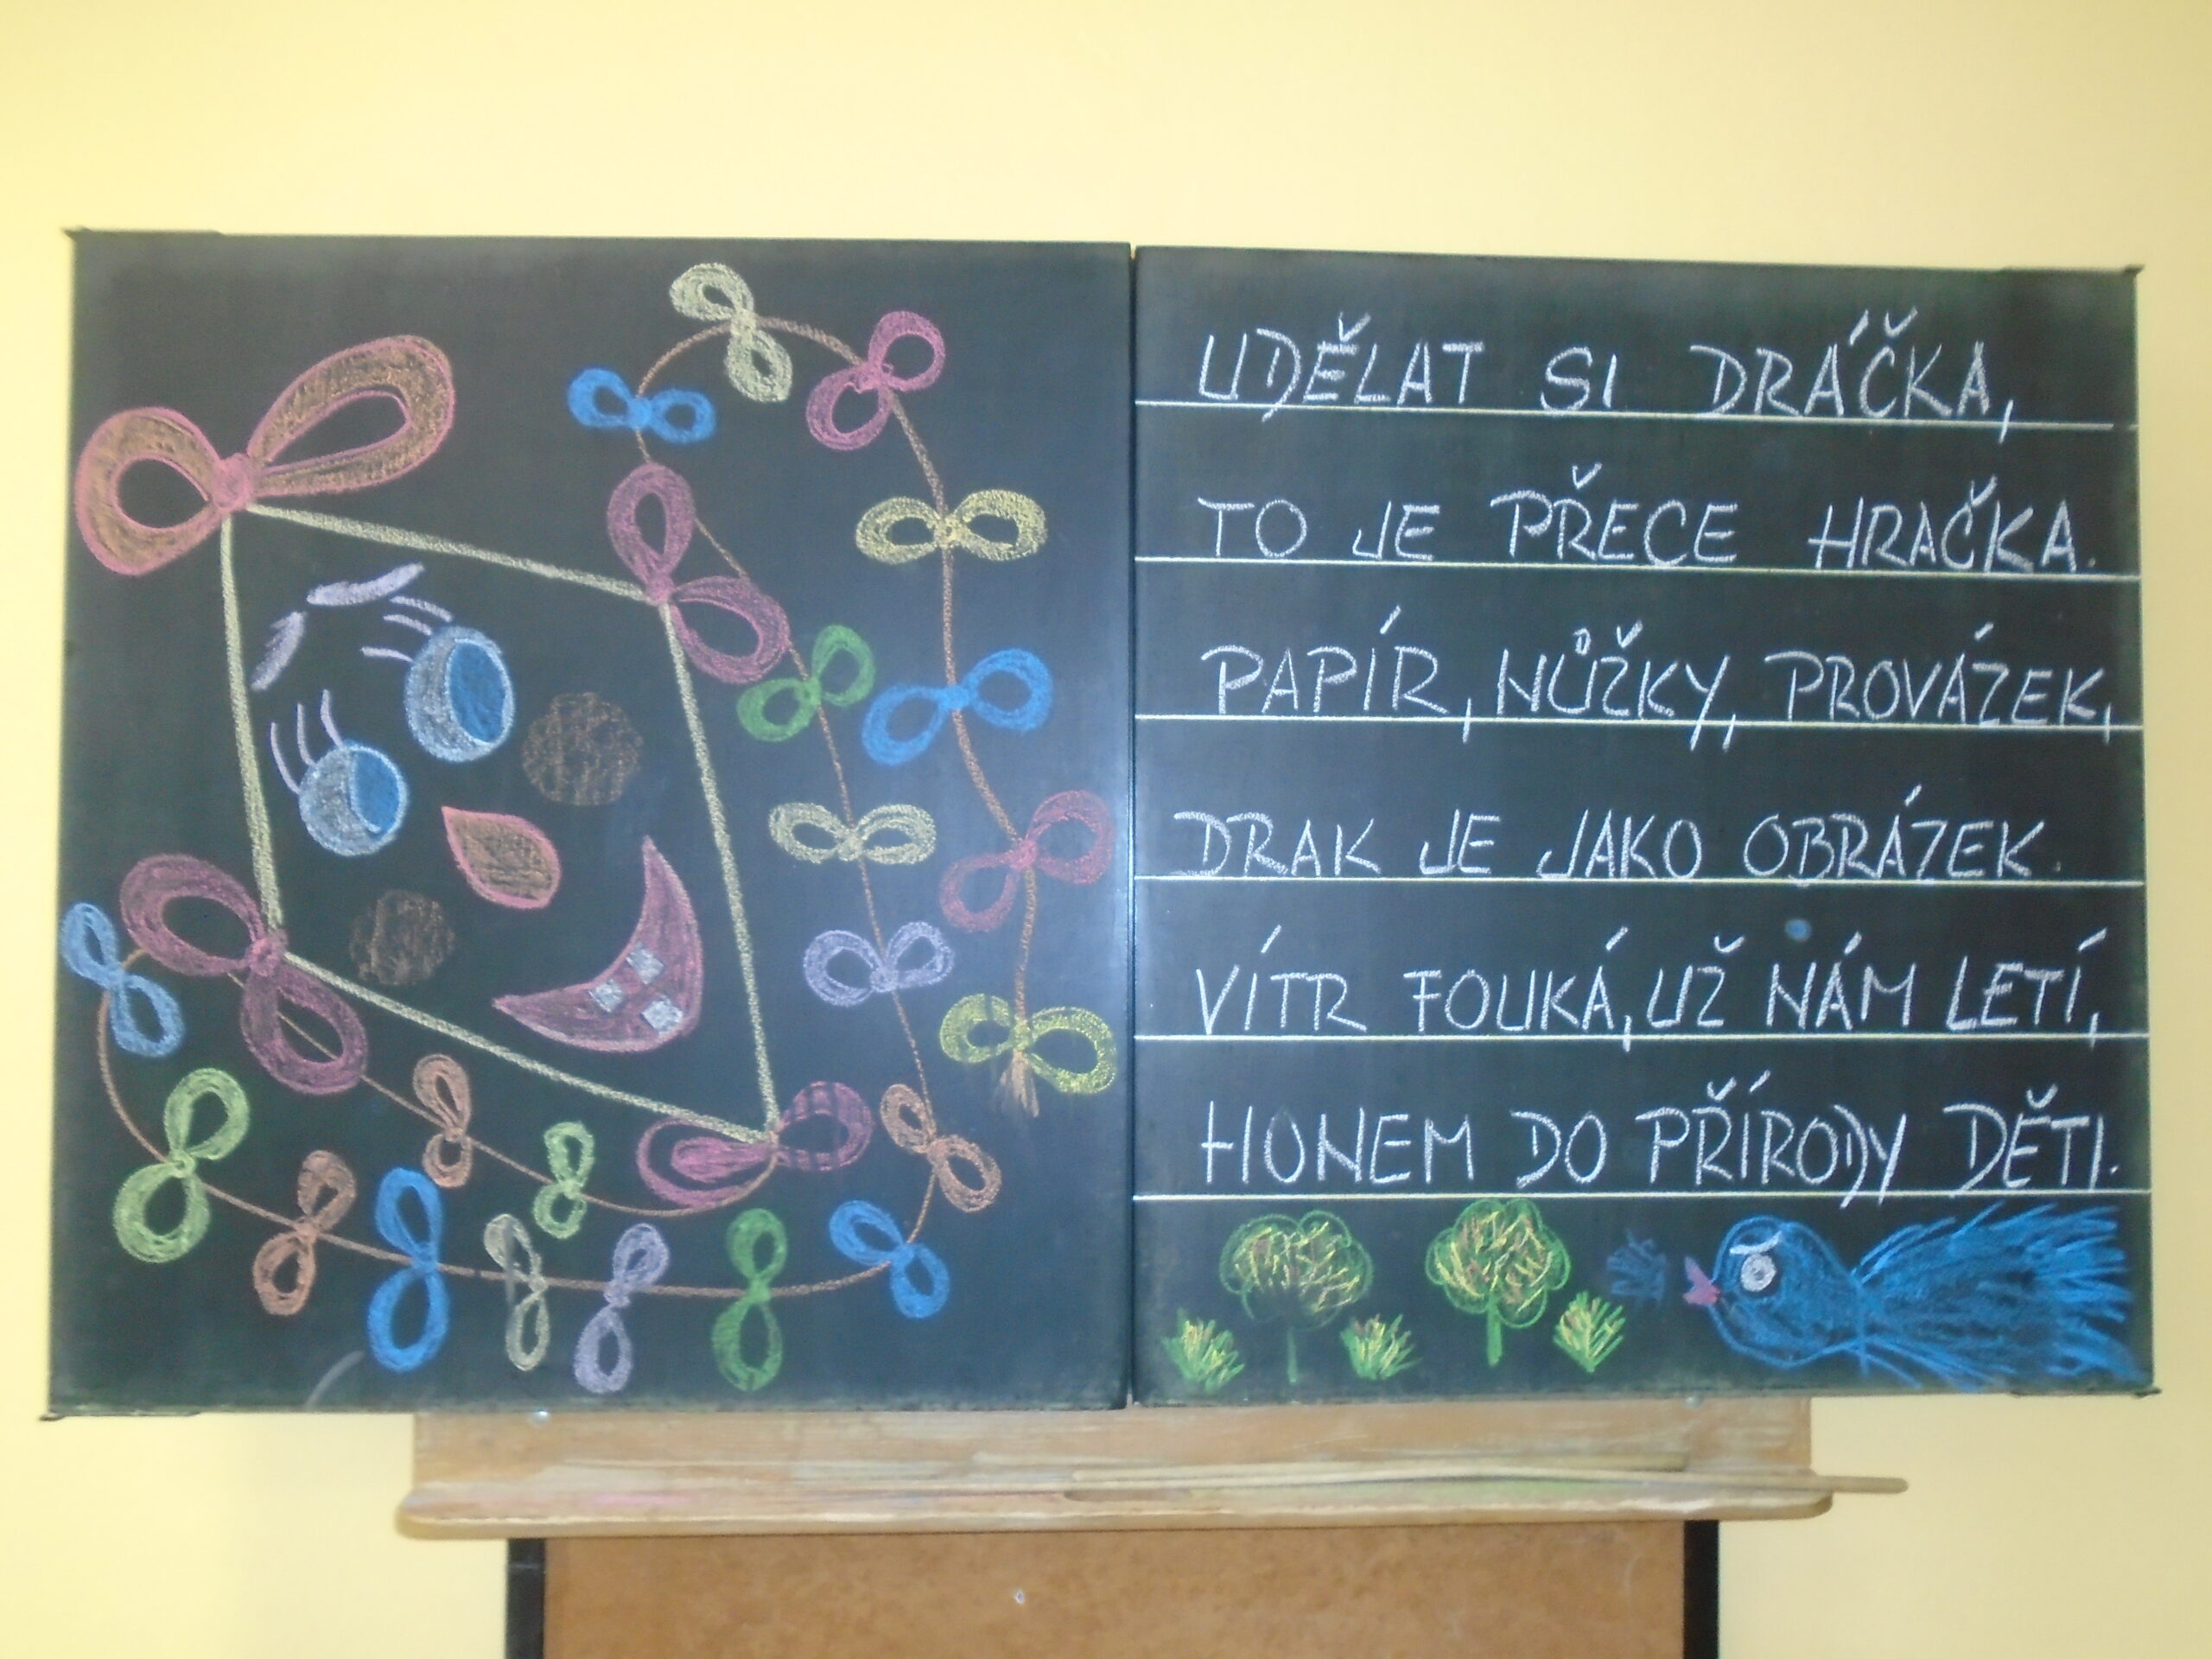 UDĚLAT SI DRÁČKA,
TO JE PŘECE HRAČKA.
PAPÍR, NŮŽKY, PROVÁZEK,
DRAK JE JAKO OBRÁZEK.
VÍTR FOUKÁ, UŽ NÁM LETÍ,
HONEM DO PŘÍRODY DĚTI.